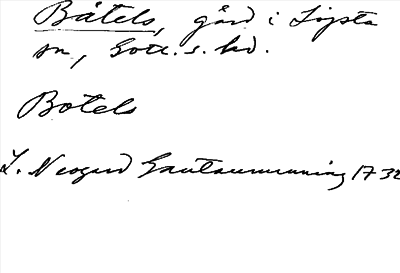 Båtels, gård i Lojsta
sn, Gotl. s. hd.
Botels
L. Neogard Gautauminning 1732